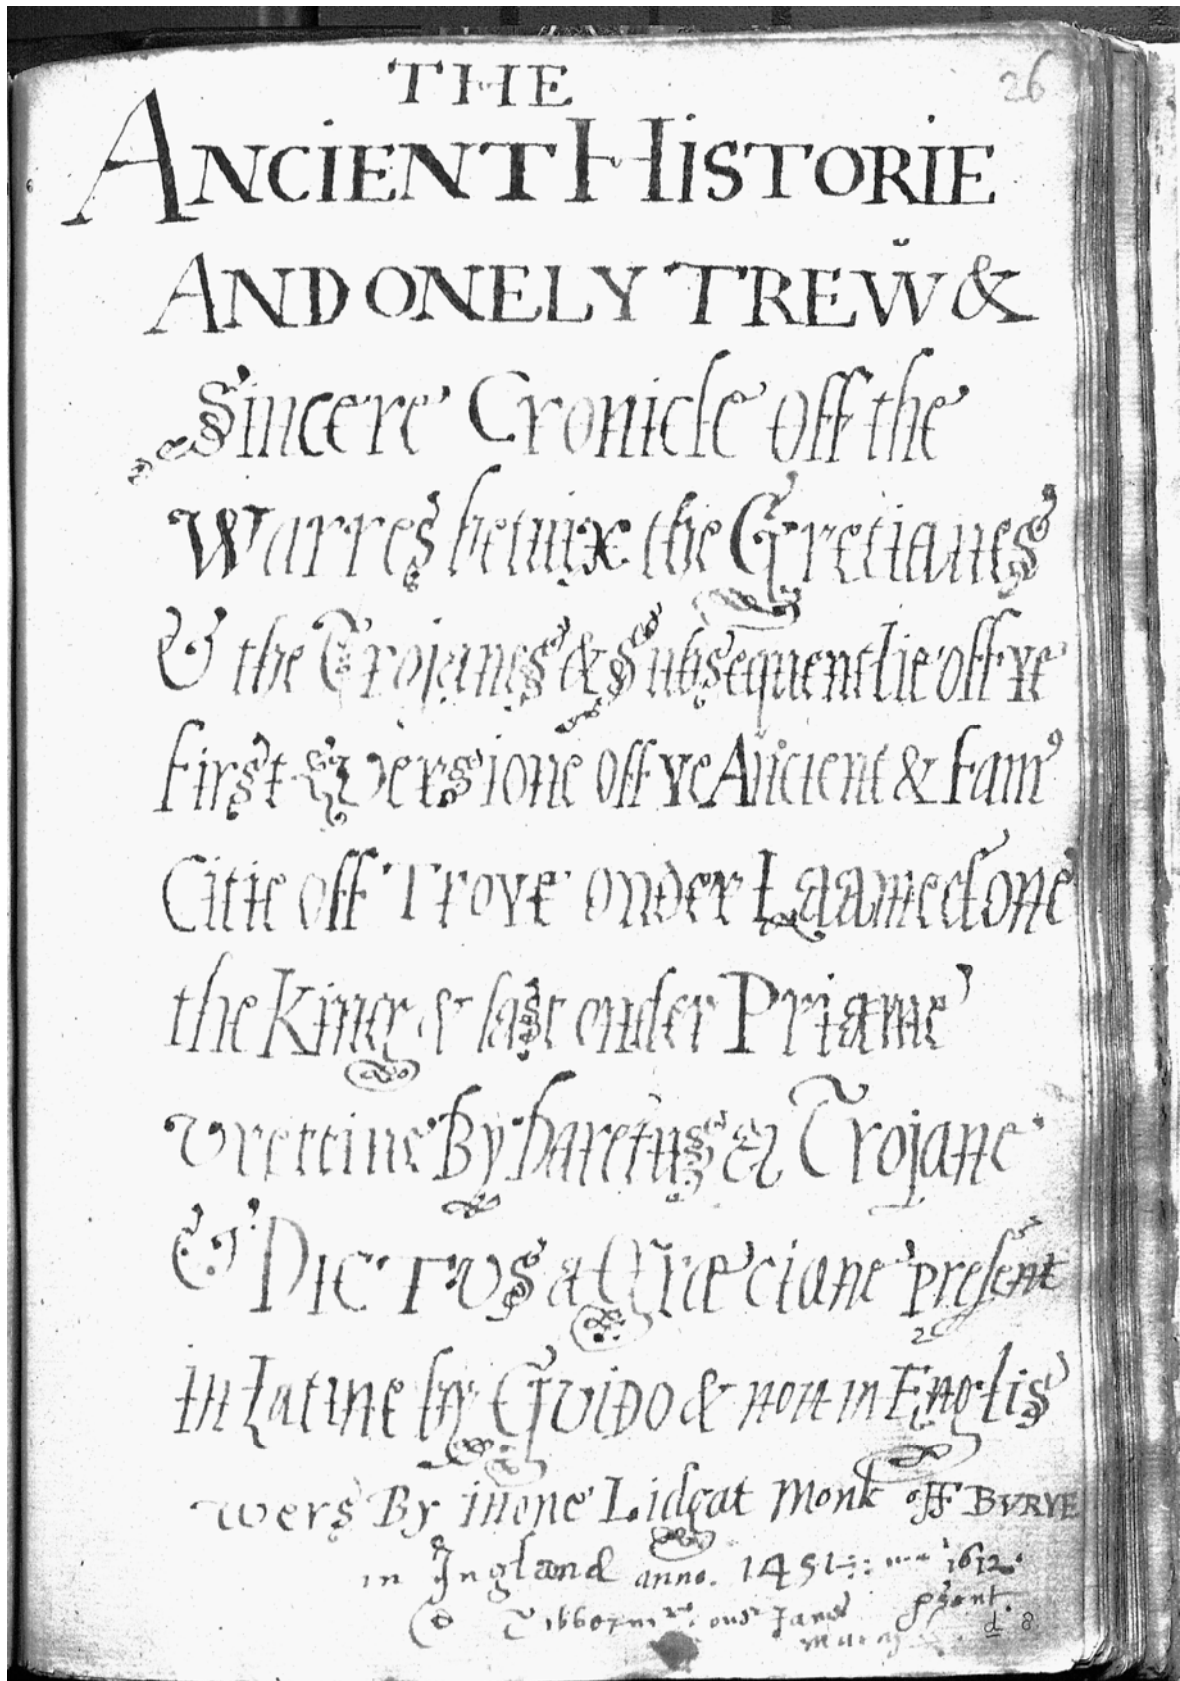 26
THE
ANCIENT HISTORIE
AND ONELY TREW &
Sincere Cronicle off the
Warres betuix the Gretianes
& the Trojanes & Subsequentlie off ye
first Eversione off ye Ancient & fam
Citie off Troye onder Laamedone
the King & last onder Priame
vrettine By Daretus a Trojane
& DICTUS a Græciane present
in Latine by GUIDO & now in Englis
wers By Lidgat Monk off BVRYE
in Ingland anno. 1451 1612
d 8